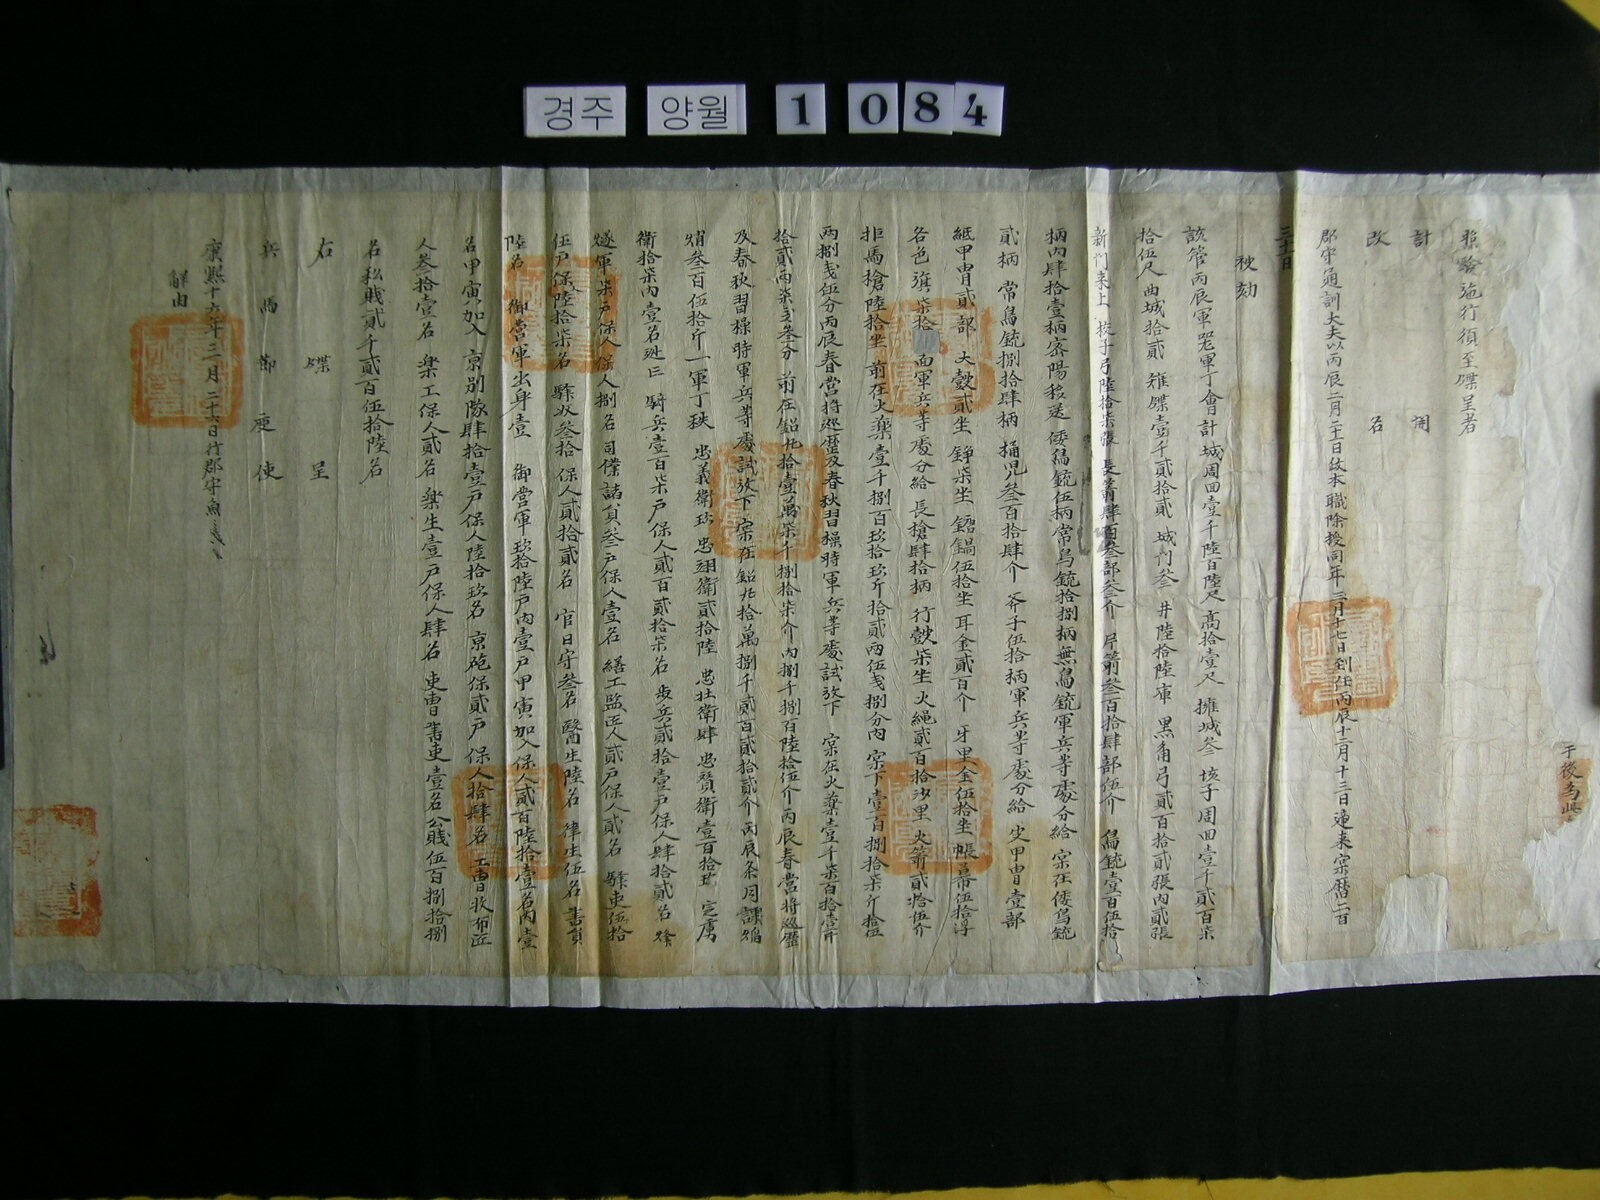 경주 양월 1 084
照驗施行須至牒呈者
計 開
改 名
郡守通訓大夫以丙辰二月二十日政本職除授同年三月十七日到任丙辰十二月十三日遞來實曆二百
三十日
被劾
該管丙辰軍器軍丁會計城周回壹千陸百陸尺高拾壹尺 擁城叁 垓子周回壹千貳百柒
拾伍尺 曲城拾貳 雉堞壹千貳拾貳 城門叁 井陸拾陸庫 黑角弓貳百拾貳張內貳張
新 上 校子弓陸拾柒張 長箭肆百叁部叁介 片箭叁百拾肆部伍介 鳥銃壹百伍拾
柄內肆拾壹柄密陽移送 倭鳥銃伍柄常鳥銃拾捌柄無鳥銃軍兵等處分給 實在倭鳥銃
貳柄 常鳥銃捌拾肆柄 桶兒叁百拾肆介 斧子伍拾柄軍兵等處分給 甲冑壹部
紙甲冑貳部 大鼓貳坐 錚柒坐 鍋伍拾坐 耳金貳百介 牙里金伍拾坐 帳幕伍拾浮
各色旗柒拾 面軍兵等處分給 長槍肆拾柄 行鼓柒坐 火繩貳百拾沙里 火箭貳拾伍介
拒馬槍陸拾坐 前在火藥壹千捌百玖拾玖斤拾貳兩伍戔捌分內 實下壹百捌拾柒斤拾伍
兩捌戔伍分丙辰春營將巡歷及春秋習操時軍兵等處試放下 實在火藥壹千柒百拾壹斤
拾貳兩柒戔叁分 前在鉛丸拾壹萬柒千捌拾柒介內捌千捌百陸拾伍介丙辰春營將巡歷
及春秋習操時軍兵等處試放下 實在鉛丸拾萬捌千貳百貳拾貳介 丙辰 月課焰
焇叁百伍拾斤 一軍丁秩 忠義衛玖 忠翊衛貳拾陸 忠壯衛肆 忠贊衛壹百拾 定虜
衛拾柒內壹名 騎兵壹百柒戶保人貳百貳拾柒名 步兵貳拾壹戶保人肆拾貳名 烽
燧軍柒戶保人保人捌名 司僕諸員叁戶保人壹名 繕工監匠人貳戶保人貳名 驛吏伍拾
伍戶保陸拾柒名 驛奴叁拾 保人貳拾貳名 官日守叁名 醫生陸名 律生伍名 書員
陸名 御營軍出身壹 御營軍玖拾陸戶內壹戶甲寅加入保人貳百陸拾壹名內壹
名甲寅加入 京別隊肆拾壹戶保人陸拾玖名 京砲保貳戶 保人拾肆名 工曹收布匠
人叁拾壹名 樂工保人貳名 樂生壹戶保人肆名 吏曹書吏壹名 公賤伍百捌拾捌
名 私賤貳千貳百伍拾陸名
右 牒 呈
兵 馬 節 度 使
康熙十六年三月二十六日行郡守
解由